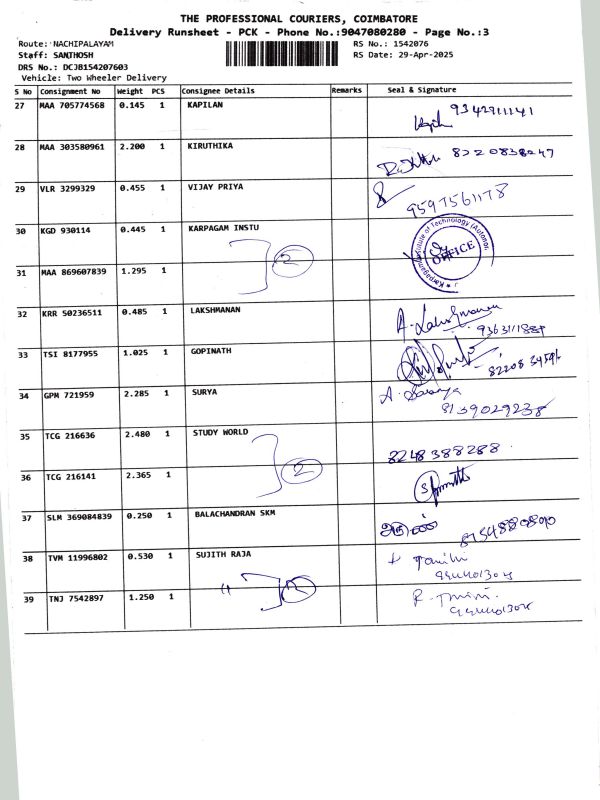 THE PROFESSIONAL COURIERS, COIMBATORE
Delivery Runsheet - PCK - Phone No.:9047080280 - Page No.:3
Route: NACHIPALAYAM RS No.: 1542076
Staff: SANTHOSH RS Date: 29-Apr-2025
DRS No.: DCJB154207603
Vehicle: Two Wheeler Delivery
S No Consignment No Weight PCS Consignee Details Remarks Seal & Signature
27 MAA 705774568 0.145 1 KAPILAN 9342911141
28 MAA 303580961 2.200 1 KIRUTHIKA 8220838247
29 VLR 3299329 0.455 1 VIJAY PRIYA 9597561178
30 KGD 930114 0.445 1 KARPAGAM INSTU
2
OFFICE
31 MAA 869607839 1.295 1
32 KRR 50236511 0.485 1 LAKSHMANAN A. Lakshmanan
33 TSI 8177955 1.025 1 GOPINATH
34 GPM 721959 2.285 1 SURYA
8139029238
35 TCG 216636 2.480 1 STUDY WORLD 8248388288
2
36 TCG 216141 2.365 1
37 SLM 369084839 0.250 1 BALACHANDRAN SKM
38 TVM 11996802 0.530 1 SUJITH RAJA
" 2
39 TNJ 7542897 1.250 1